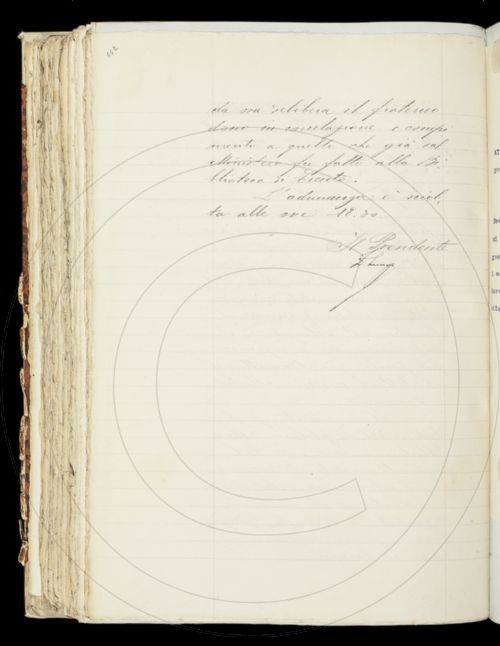 112
dà ora delibera il fraterno
dono in correlazione e compi
mento a quello che già dal
Ministero fu fatto alla Bi-
blioteca di Trento.
L'adunanza è sciol,
ta alle ore 18.30
Il Presidente